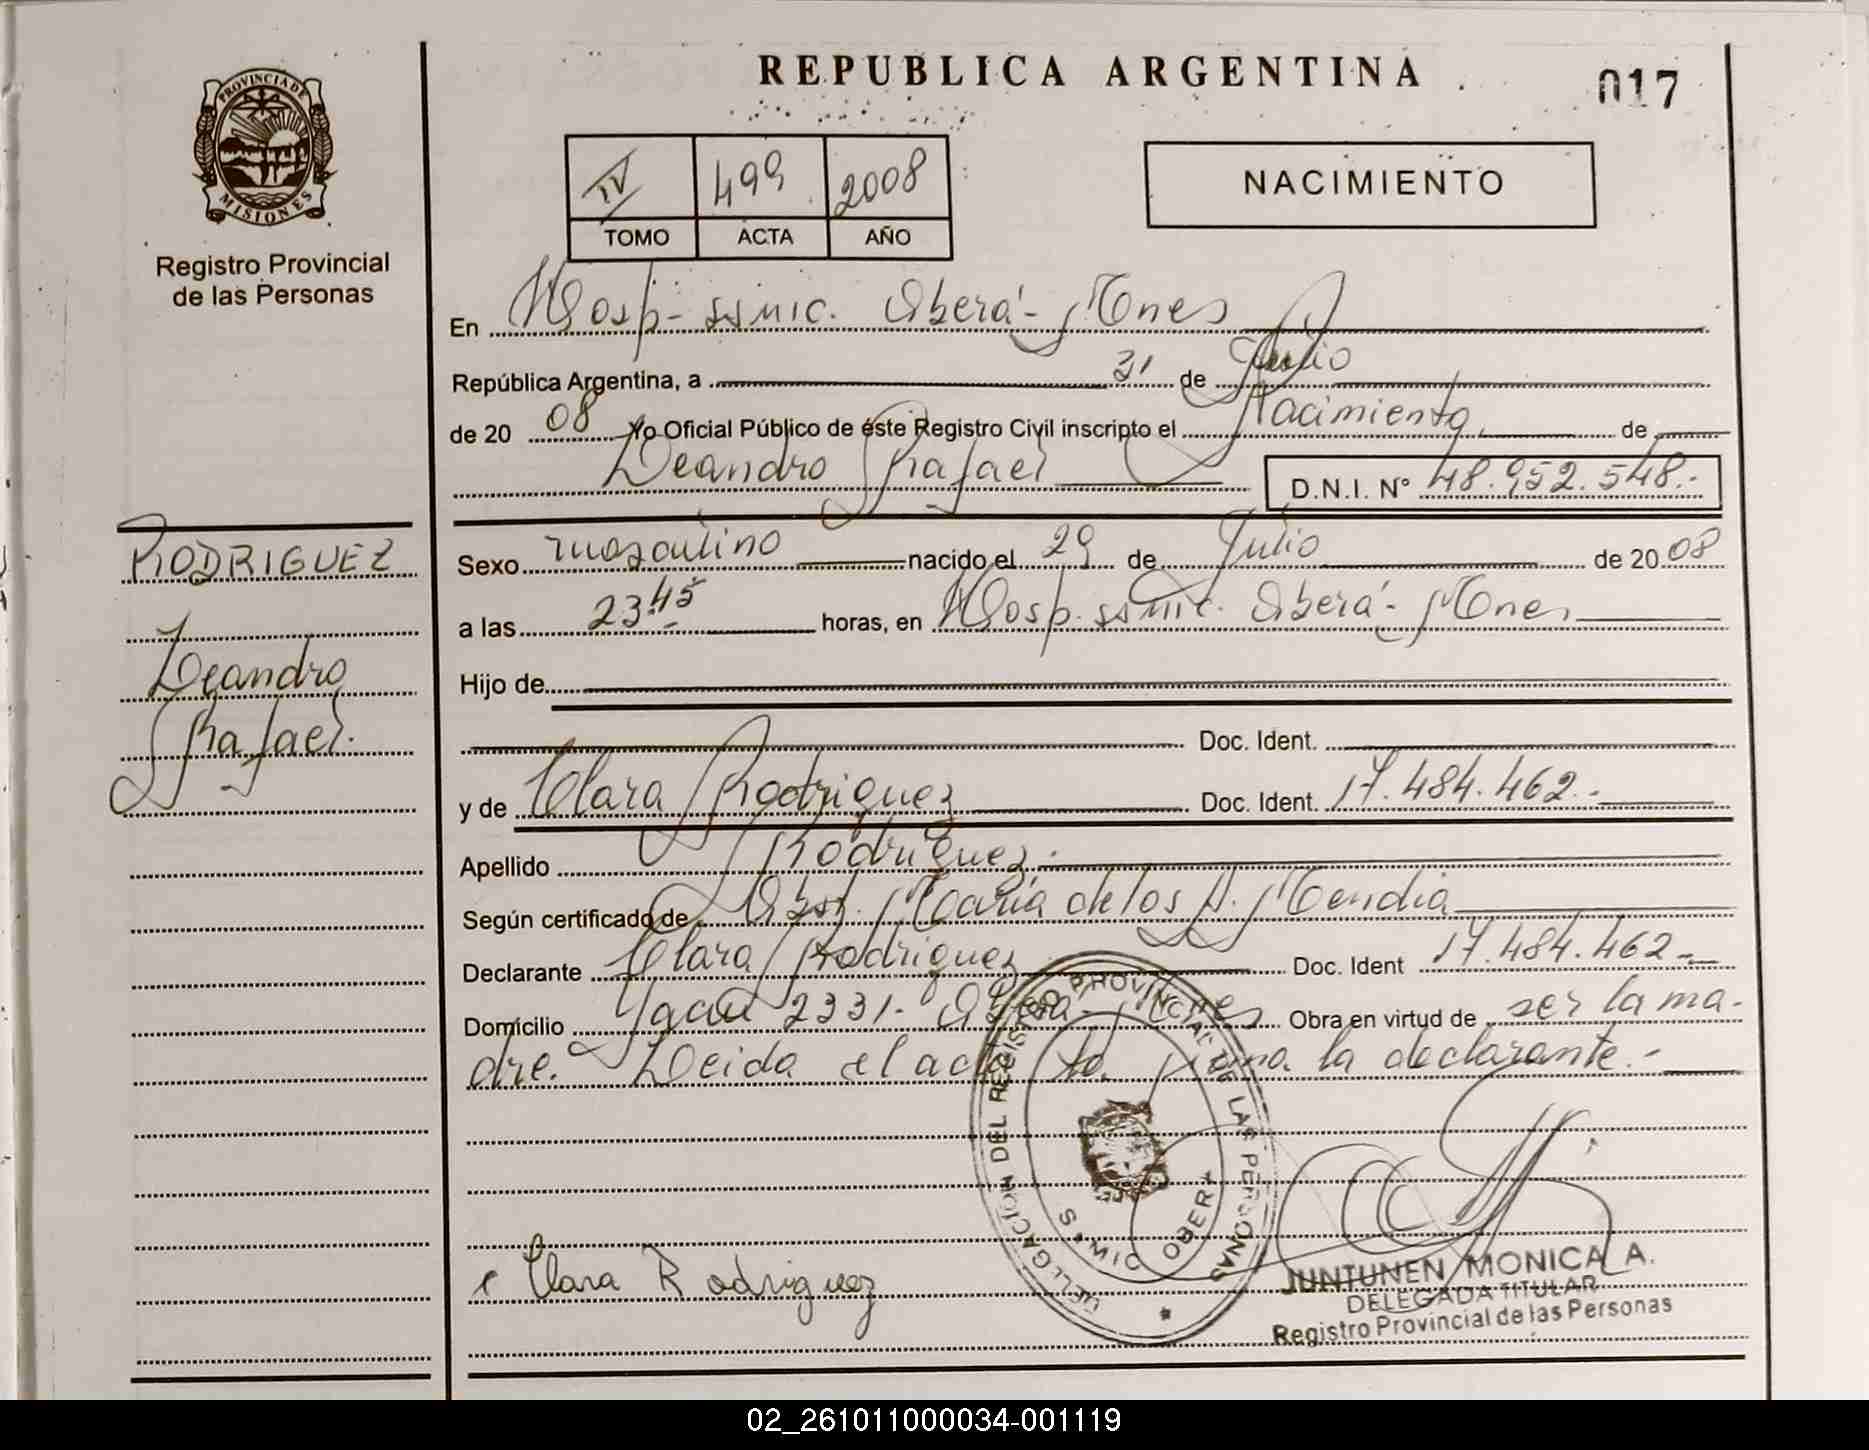 PROVINCIA DE
MISIONES
Registro Provincial
de las Personas
REPUBLICA ARGENTINA
017
IV 499 2008
TOMO ACTA AÑO
NACIMIENTO
En Hosp. ssmic. Oberá - Mnes
República Argentina, a 31 de Julio
de 20 08 Yo Oficial Público de éste Registro Civil inscripto el Nacimiento de
Leandro Rafael D.N.I. N° 48.952.548.-
RODRIGUEZ
Leandro
Rafael.
Sexo masculino nacido el 29 de Julio de 20 08
a las 23.45 horas, en Hosp. ssmic. Oberá - Mnes
Hijo de
Doc. Ident.
y de Clara Rodriguez Doc. Ident. 17.484.462.-
Apellido Rodriguez.
Según certificado de Obst. María de los A. Mendia
Declarante Clara Rodriguez Doc. Ident 17.484.462.-
Domicilio Yacú 2331 - Oberá - Mnes Obra en virtud de ser la ma-
dre. Leida el acta la firma la declarante.-
Clara Rodriguez
DELEGACION DEL REGISTRO PROVINCIAL DE LAS PERSONAS
OBERA
JUNTUNEN MONICA A.
DELEGADA TITULAR
Registro Provincial de las Personas
02_261011000034-001119